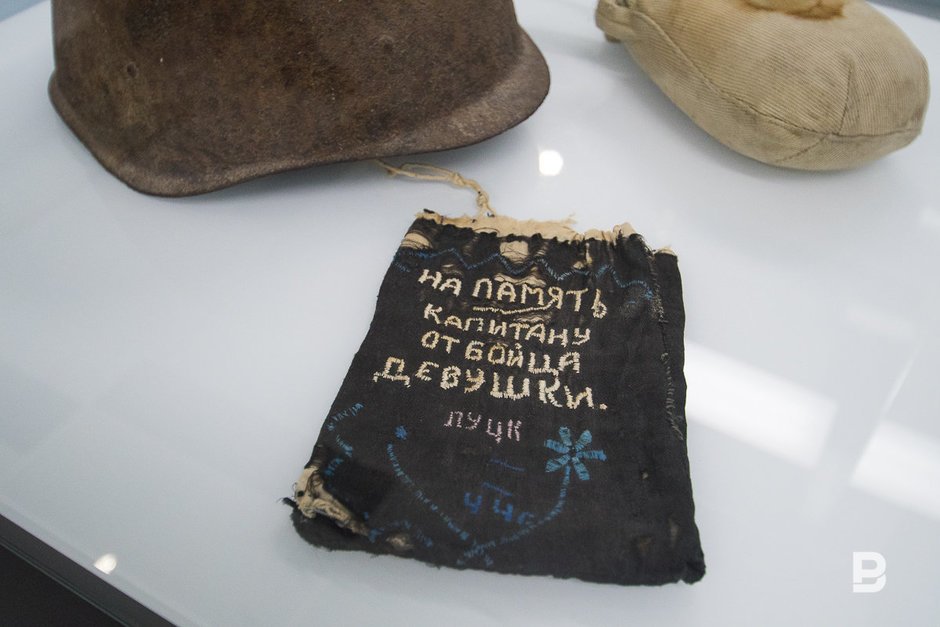 НА ПАМЯТЬ
КАПИТАНУ
ОТ БОЙЦА
ДЕВУШКИ.
ЛУЦК
44г
B